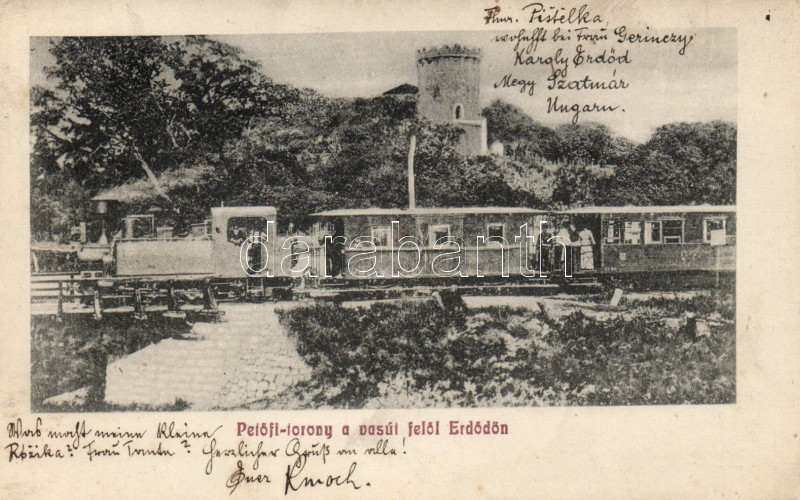 Pistelka,
wohnhft bei Frau Gerinczy
Károly Erdőd
Megy Szatmár
Ungarn.
darabanth
Petőfi-torony a vasút felől Erdődön
Was macht meine Kleine
Rózika? Frau Tante? Herzlicher Gruß an alle!
Euer Kmoch.